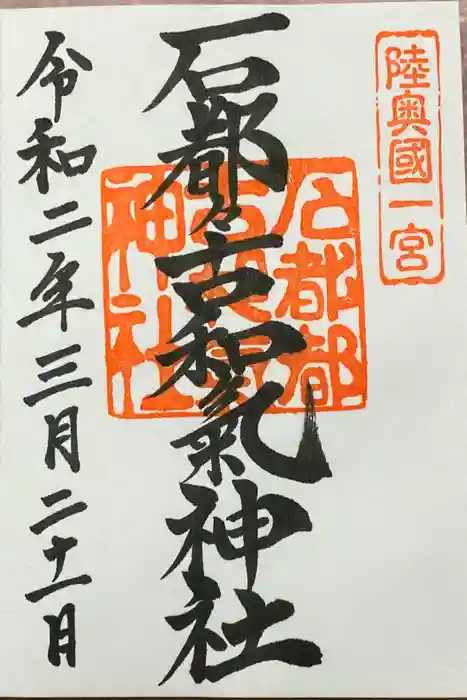 陸奥國一宮
石都々古和氣神社
石都都
神社
令和二年三月二十一日